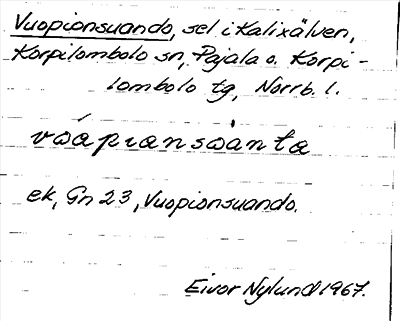 Vuopionsuando, sel i Kalixälven,
Korpilombolo sn, Pajala o. Korpi-
lombolo tg, Norrb. l.
vu̯ȧpi̯ansu̯ȧnta
ek, Gn 23, Vuopionsuando.
Eivor Nylund 1967.